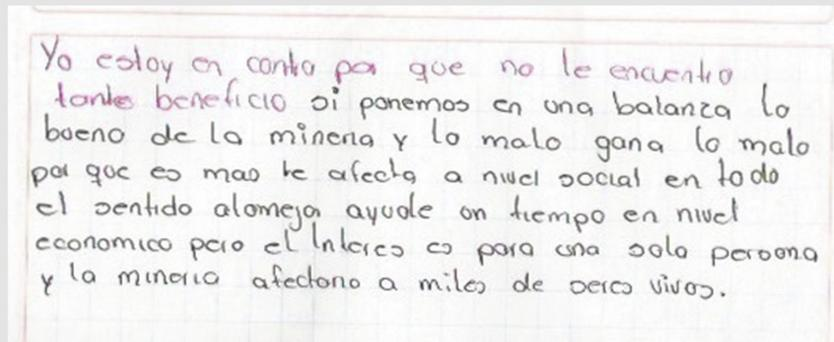 Yo estoy en contra por que no le encuentro
tante beneficio si ponemos en una balanza lo
bueno de la mineria y lo malo gana lo malo
por que es mas te afecta a nivel social en todo
el sentido alomejor ayude un tiempo en nivel
economico pero el Interes es para una sola persona
y la mineria afectono a miles de seres vivos.